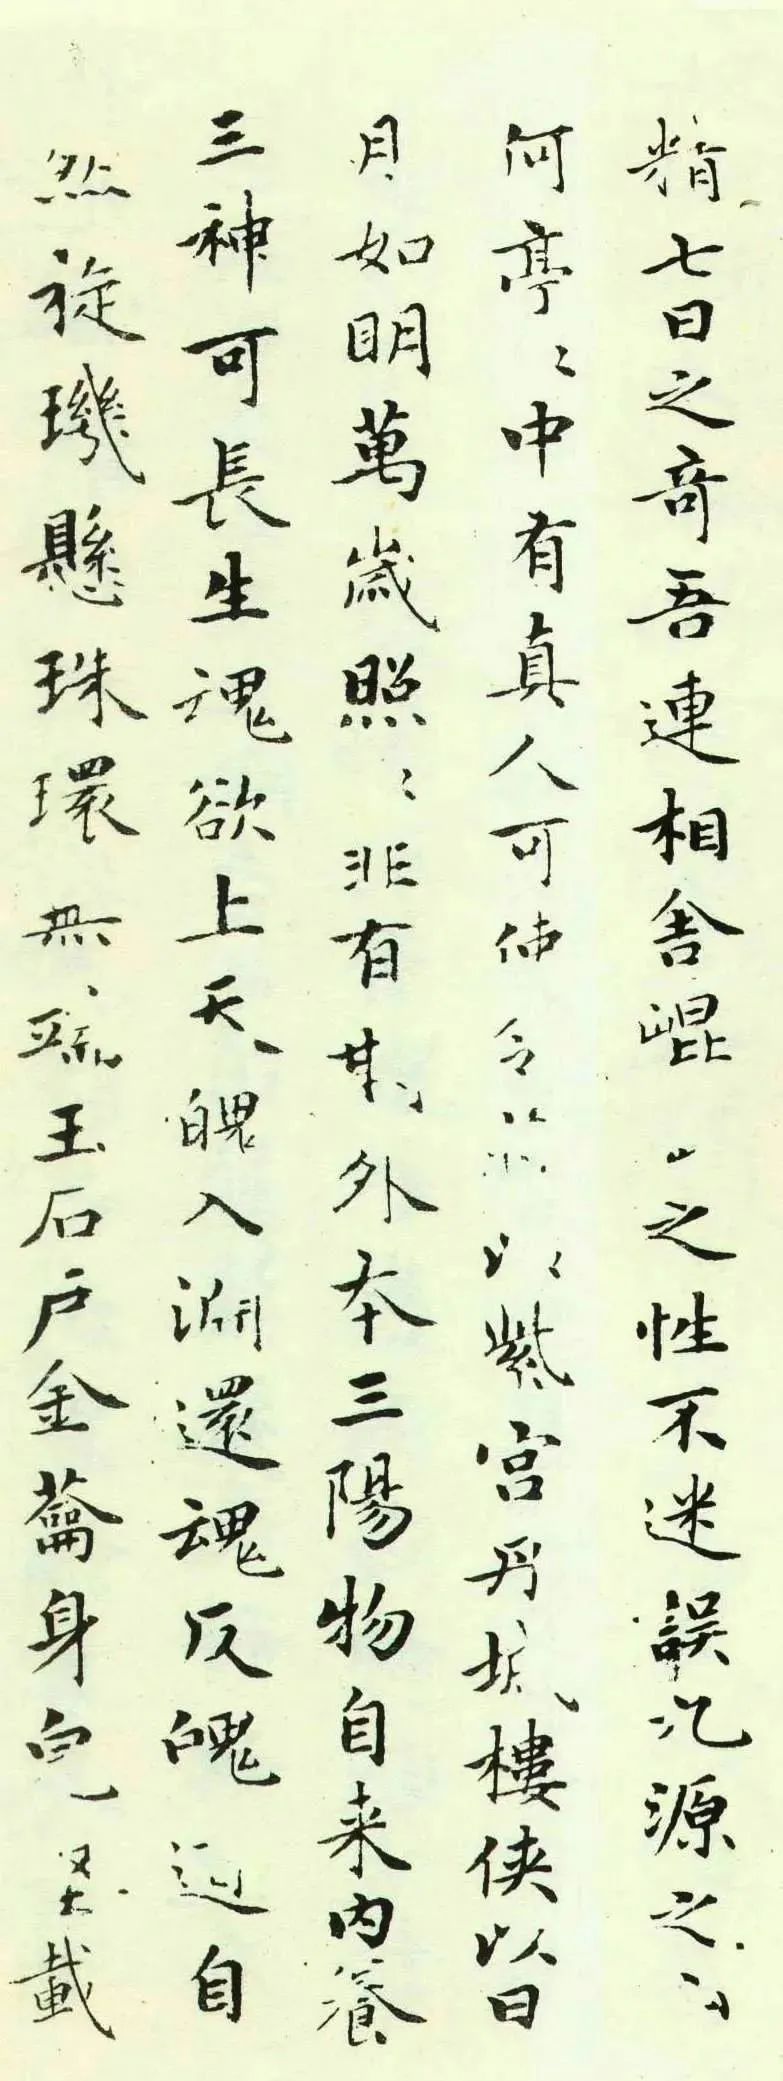 精七日之奇吾連相舎崐之性不迷誤九源之山
何亭〻中有真人可使令蔽以紫宮丹城樓俠以日
月如明萬歲照〻非有期外本三陽物自来内養
三神可長生魂欲上天魄入淵還魂反魄道自
然旋璣懸珠環無端玉石戶金蘥身完堅載